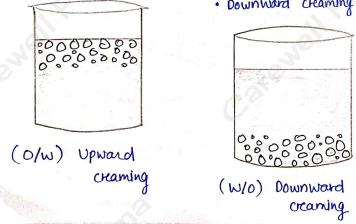 • Downward creaming
(O/W) Upward
creaming
(W/O) Downward
creaming
Carewell